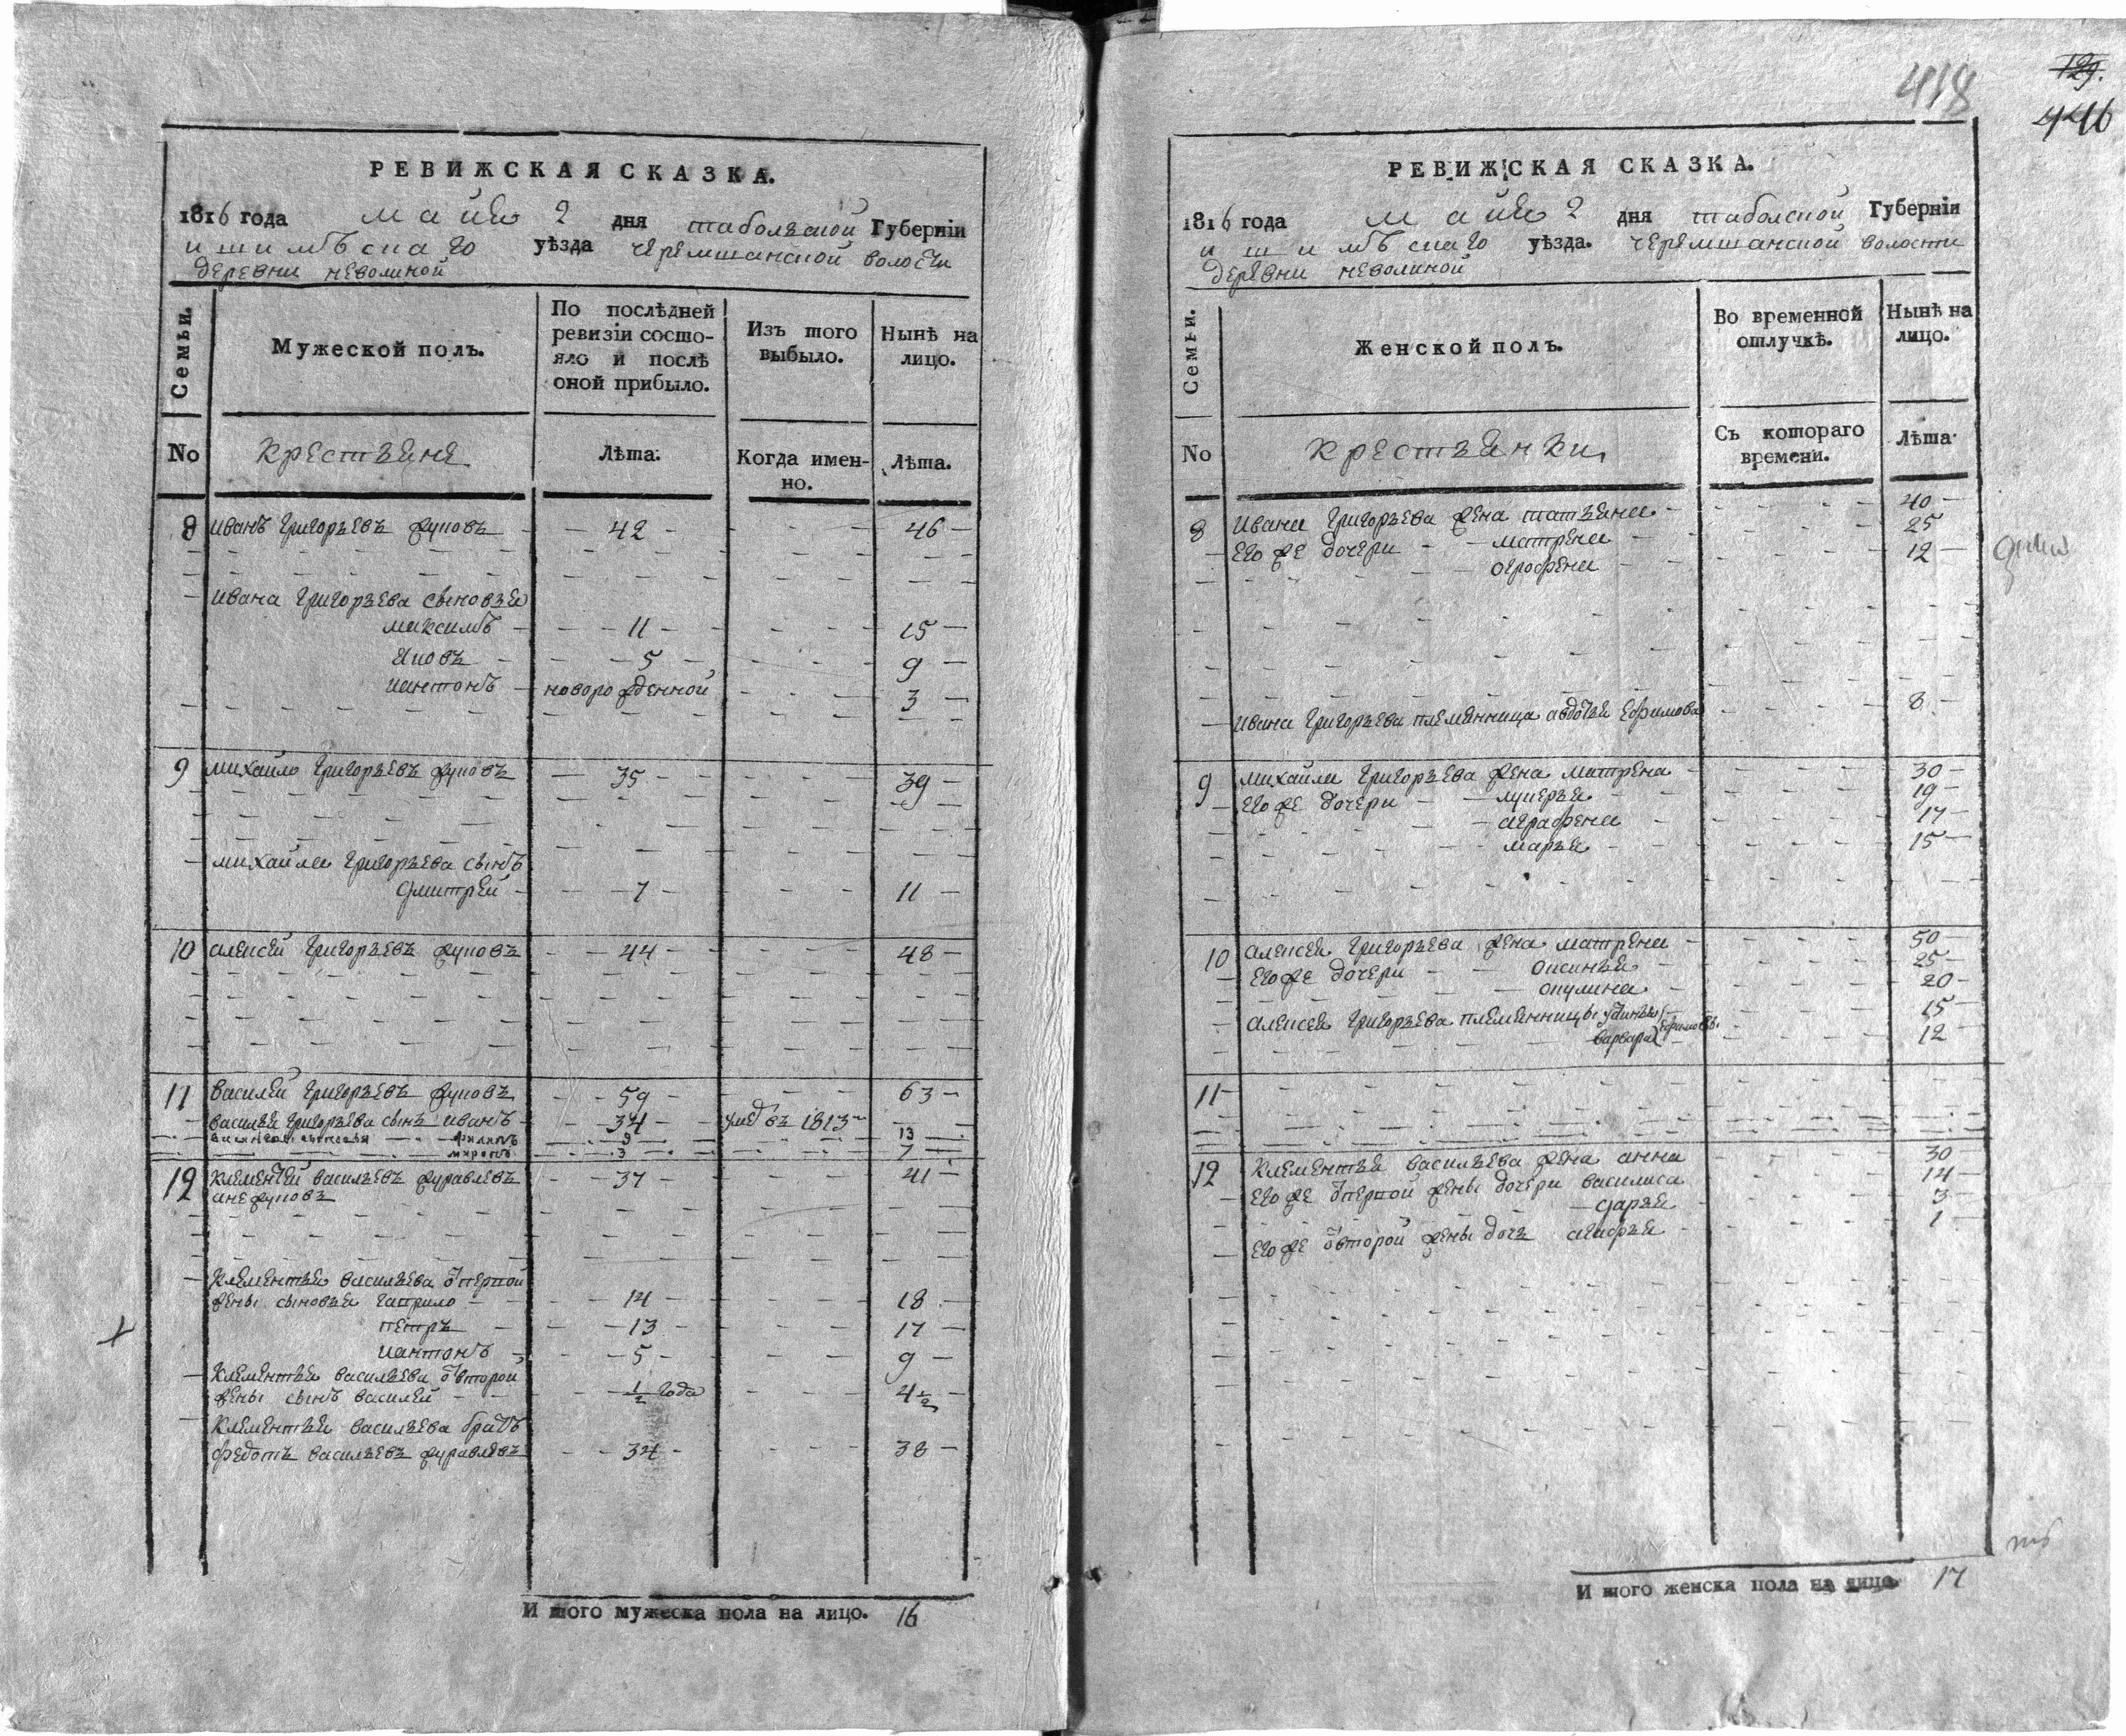 РЕВИЖСКАЯ СКАЗКА.
1816 года майя 2 дня таболской Губерніи
ишимъскаго уѣзда черемшанской волости
деревни неволиной
Семьи.
Мужеской полъ.
По послѣдней
ревизіи состо-
яло и послѣ
оной прибыло.
Изъ того
выбыло.
Нынѣ на
лицо.
No крестьяне Лѣта. Когда имен-
но.
Лѣта.
8 Иванъ Григорьевъ жуковъ 42 46
Ивана Григорьева сыновья
максимъ 11 15
яковъ 5 9
иантонъ новорожденной 3
9 михайло Григорьевъ жуковъ 35 39
михайла Григорьева сынъ
дмитрей 7 11
10 алексей Григорьевъ жуковъ 44 48
11 василей Григорьевъ жуковъ 59 63
василья Григорьева сынъ иванъ 34 умре въ 1813м
сыновья 9 13
3 7
12 клементей васильевъ журавлевъ 37 41
анежуковъ
клементья васильева ѿпервой
жены сыновья гаврило 14 18
петръ 13 17
иантонъ 5 9
клементья васильева ѿвторой
жены сынъ василей 1/2 года 4 1/2
клементья васильева братъ
федотъ васильевъ журавлевъ 34 38
И того мужеска пола на лицо. 16
418
129.
446
РЕВИЖСКАЯ СКАЗКА.
1816 года майя 2 дня таболской Губерніи
ишимъскаго уѣзда. черемшанской волости
деревни неволиной
Семьи.
Женской полъ.
Во временной
отлучкѣ.
Нынѣ на
лицо.
No крестьянки Съ котораго
времени.
Лѣта.
8 Ивана Григорьева жена татьяна 40
Его же дочери матрена 25
огрофена 12
Ивана Григорьева племянница авдотья Ефимова 8
9 михайла Григорьева жена матрена 30
его же дочери лукерья 19
аграфена 17
марья 15
10 алексея Григорьева жена матрена 50
его же дочери оксинья 25
окулина 20
алексея Григорьева племянницы 15
варвара Ефимовы 12
11
12 клементья васильева жена анна 30
его же ѿпервой жены дочери василиса 14
дарья 3
его же ѿвторой жены дочь агафья 1
И того женска пола на лицо. 17